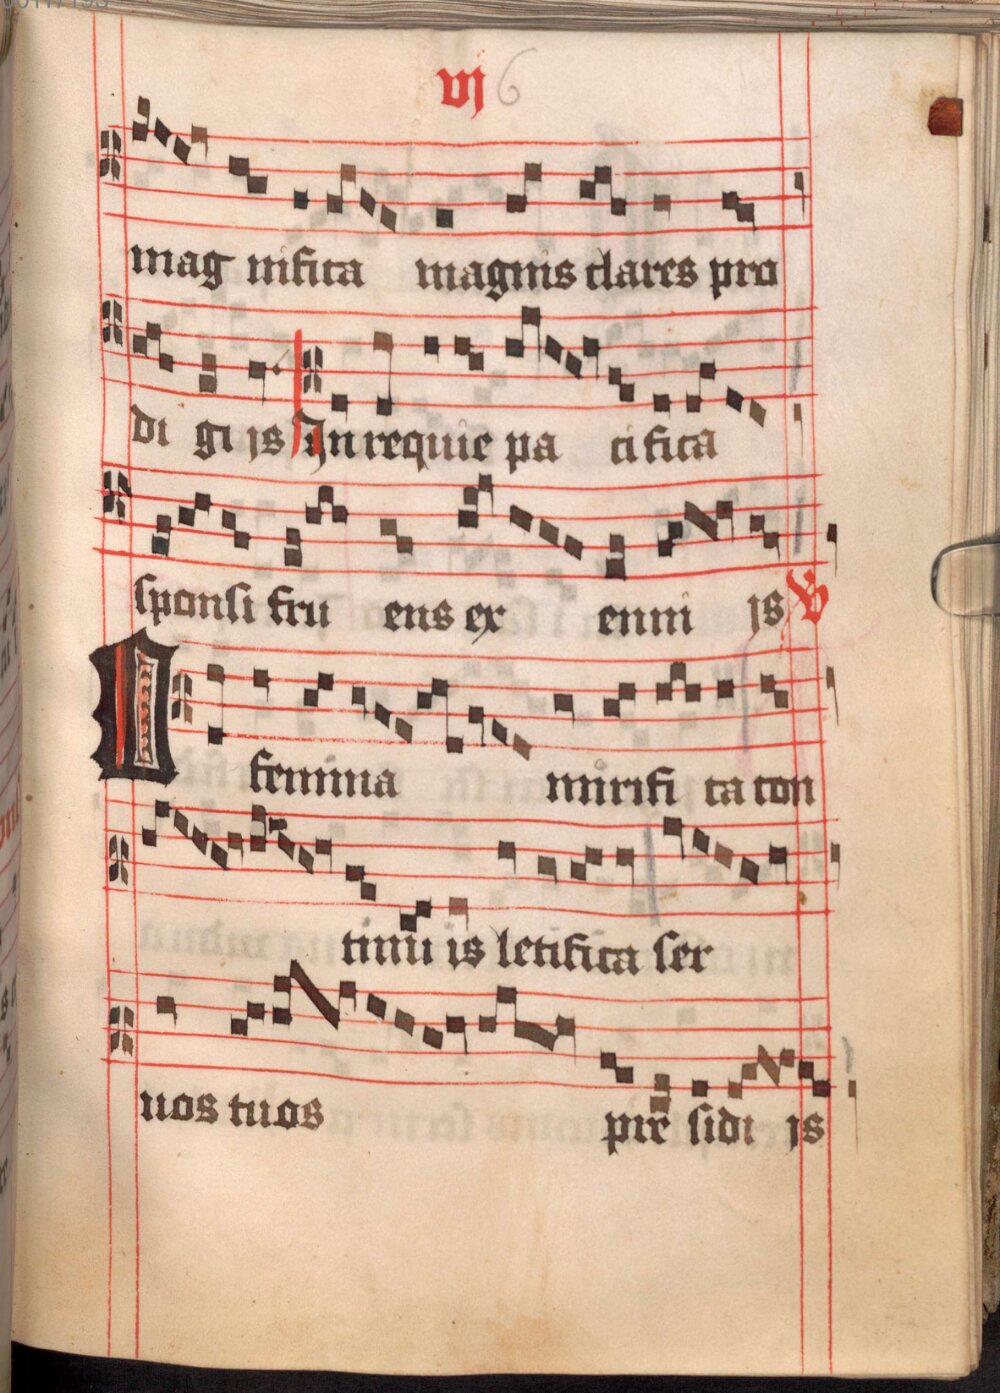 vj 6
mag nifica magnis clares pro
di gi js In requie pa cifica
sponsi fru ens ex enni js V
O femina mirifi ca con
tinu is letifica ser
uos tuos pre sidi js